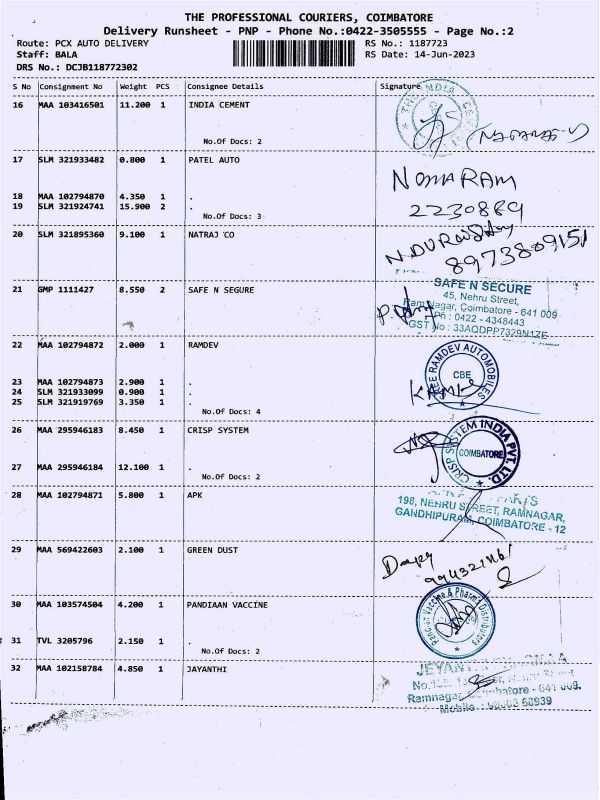 THE PROFESSIONAL COURIERS, COIMBATORE
Delivery Runsheet - PNP - Phone No.:0422-3505555 - Page No.:2
Route: PCX AUTO DELIVERY RS No.: 1187723
Staff: BALA RS Date: 14-Jun-2023
DRS No.: DCJB118772302
S No Consignment No Weight PCS Consignee Details Signature
16 MAA 103416501 11.200 1 INDIA CEMENT
No.Of Docs: 2
17 SLM 321933482 0.800 1 PATEL AUTO
NOMARAM
18 MAA 102794870 4.350 1 .
19 SLM 321924741 15.900 2 .
2230889
No.Of Docs: 3
20 SLM 321895360 9.100 1 NATRAJ CO
8973809151
21 GMP 1111427 8.550 2 SAFE N SECURE
SAFE N SECURE
45, Nehru Street,
Ram Nagar, Coimbatore - 641 009
Ph : 0422 - 4348443
GST No : 33AQDPP7329N1ZE
22 MAA 102794872 2.000 1 RAMDEV
REE RAMDEV AUTOMOBILES
CBE
23 MAA 102794873 2.900 1 .
24 SLM 321933099 0.900 1 .
25 SLM 321919769 3.350 1 .
No.Of Docs: 4
26 MAA 295946183 8.450 1 CRISP SYSTEM
CRISP SYSTEM INDIA PVT. LTD.
COIMBATORE
27 MAA 295946184 12.100 1 .
No.Of Docs: 2
28 MAA 102794871 5.800 1 APK
198, NEHRU STREET, RAMNAGAR,
GANDHIPURAM, COIMBATORE - 12
29 MAA 569422603 2.100 1 GREEN DUST
30 MAA 103574504 4.200 1 PANDIAAN VACCINE
Pandian Vaccine & Pharma Distributors
31 TVL 3205796 2.150 1 .
No.Of Docs: 2
32 MAA 102158784 4.850 1 JAYANTHI
Ramnagar, Coimbatore - 641 009.
Mobile